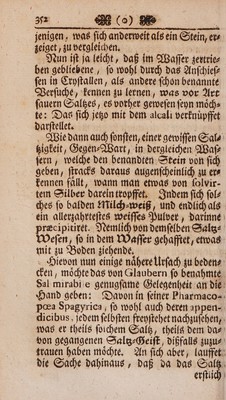 352 (0)
jenigen, was sich anderweit als ein Stein, er-
zeiget, zu vergleichen.
Nun ist ja leicht, daß im Wasser zertrie-
ben gebliebene, so wohl durch das Anschies-
sen in Crystallen, als andere schon benannte
Versuche, kennen zu lernen, was vor Art
sauern Saltzes, es vorher gewesen seyn möch-
te: Das sich jetzo mit dem alcali verknüpfft
darstellet.
Wie dann auch sonsten, einer gewissen Sal-
tzigkeit, Gegen-Wart, in dergleichen Was-
sern, welche den benandten Stein von sich
geben, stracks daraus augenscheinlich zu er-
kennen fällt, wann man etwas von solvir-
tem Silber darein tropffet. Indem sich sol-
ches so balden Milch-weiß, und endlich als
ein allerzahrtestes weisses Pulver, darinne
præcipitiret. Nemlich von demselben Saltz-
Wesen, so in dem Wasser gehafftet, etwas
mit zu Boden ziehende.
Hievon nun einige nähere Ursach zu beden-
cken, möchte das von Glaubern so benahmte
Sal mirabi e genugsame Gelegenheit an die
Hand geben: Davon in seiner Pharmaco-
pœa Spagyrica, so wohl auch deren appen-
dicibus, jedem selbsten freystehet nachzusehen,
was er theils solchem Saltz, theils dem da-
von gegangenen Saltz-Geist, dißfalls zuzu-
trauen haben möchte. An sich aber, lauffet
die Sache dahinaus, daß da das Saltz
erstlich